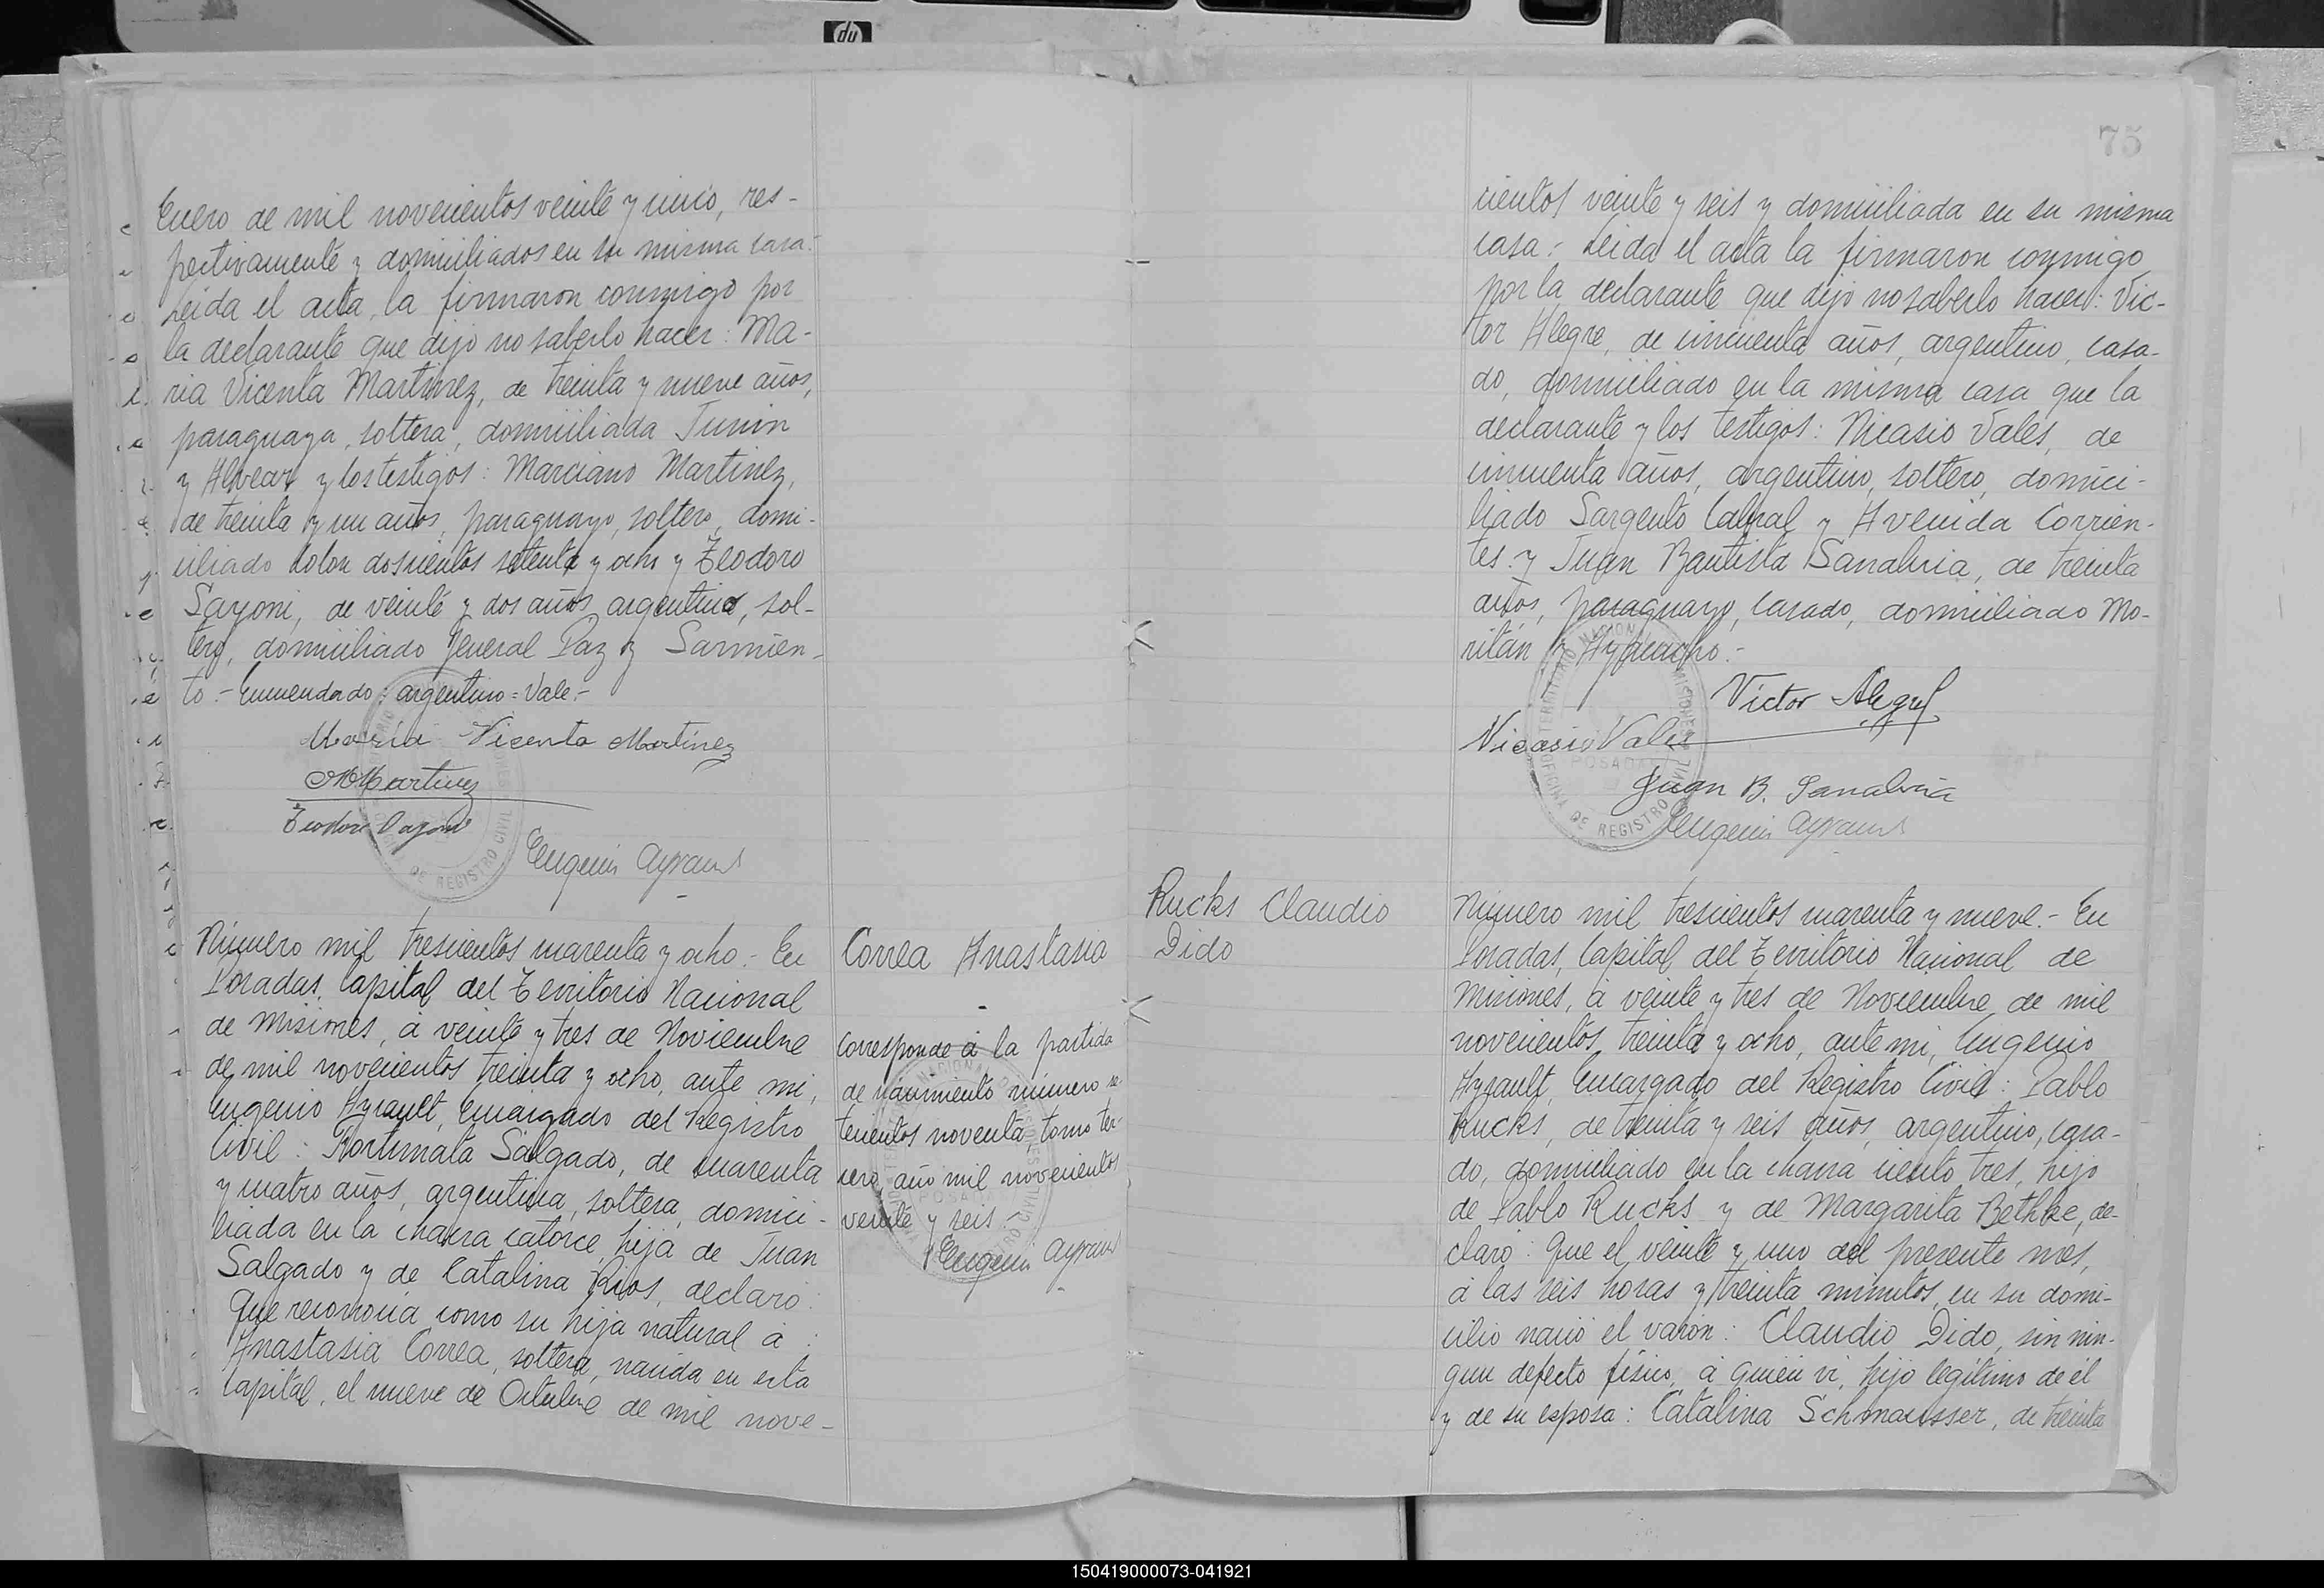 Enero de mil novecientos veinte y cinco, res-
pectivamente y domiciliados en su misma casa.-
Leida el acta, la firmaron conmigo por
la declarante que dijo no saberlo hacer: Ma-
ria Vicenta Martinez, de treinta y nueve años,
paraguaya, soltera, domiciliada Junin
y Alvear y los testigos: Marciano Martinez,
de treinta y un años, paraguayo, soltero, domi-
ciliado Colon doscientos setenta y ocho y Teodoro
Sayoni, de veinte y dos años, argentino, sol-
tero, domiciliado General Paz y Sarmien-
to.- Enmendado: argentino = Vale.-
Maria Vicenta Martinez
MMartinez
Teodoro Sayoni
Eugenio Ayrault
Número mil trescientos cuarenta y ocho.- En
Posadas, Capital del Territorio Nacional
de Misiones, á veinte y tres de Noviembre
de mil novecientos treinta y ocho, ante mi,
Eugenio Ayrault, Encargado del Registro
Civil: Fortunata Salgado, de cuarenta
y cuatro años, argentina, soltera, domici-
liada en la chacra catorce, hija de Juan
Salgado y de Catalina Rios, declaró:
Que reconocía como su hija natural á:
Anastasia Correa, soltera, nacida en esta
Capital, el nueve de Octubre de mil nove-
Correa Anastasia
-
Corresponde á la partida
de nacimiento número se-
tecientos noventa, tomo ter-
cero, año mil novecientos
veinte y seis.
Eugenio Ayrault
75
cientos veinte y seis y domiciliada en su misma
casa.- Leida el acta la firmaron conmigo
por la declarante que dijo no saberlo hacer: Vic-
tor Alegre, de cincuenta años, argentino, casa-
do, domiciliado en la misma casa que la
declarante y los testigos: Nicasio Vales, de
cincuenta años, argentino, soltero, domici-
liado Sargento Cabral y Avenida Corrien-
tes y Juan Bautista Sanabria, de treinta
años, paraguayo, casado, domiciliado Mo-
ritán y Ayacucho.-
Victor Alegre
Nicasio Vales
Juan B. Sanabria
Eugenio Ayrault
Rucks Claudio
Dido
Número mil trescientos cuarenta y nueve.- En
Posadas, Capital del Territorio Nacional de
Misiones, á veinte y tres de Noviembre de mil
novecientos treinta y ocho, ante mi, Eugenio
Ayrault, Encargado del Registro Civil: Pablo
Rucks, de treinta y seis años, argentino, casa-
do, domiciliado en la chacra ciento tres, hijo
de Pablo Rucks y de Margarita Bethke, de-
claró: Que el veinte y uno del presente mes,
á las seis horas y treinta minutos, en su domi-
cilio nació el varón: Claudio Dido, sin nin-
gun defecto fisico, á quien vi, hijo legitimo de él
y de su esposa: Catalina Schmausser, de treinta
150419000073-041921